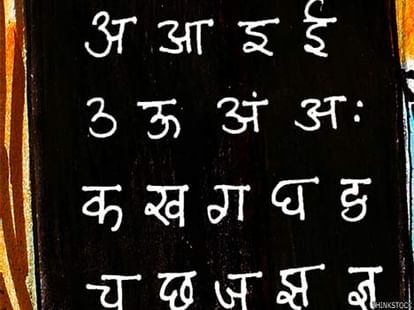 अ आ इ ई
उ ऊ अं अः
क ख ग घ ङ
च छ ज झ ञ
THINKSTOCK